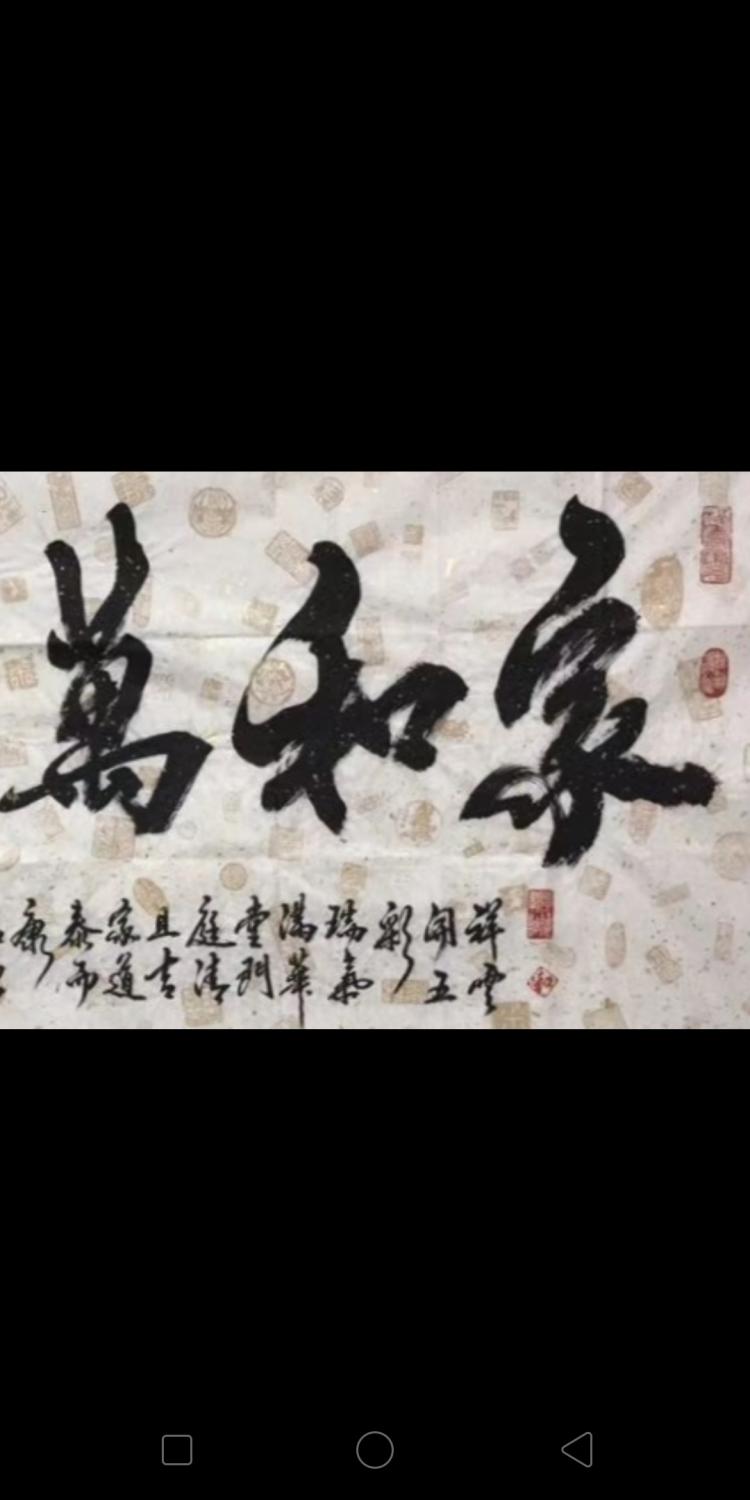 家和萬
祥雲
開五
彩
瑞氣
滿華
堂門
庭清
且吉
家道
泰而
康